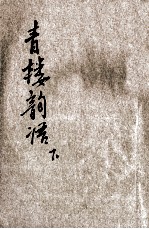 青楼韵语下